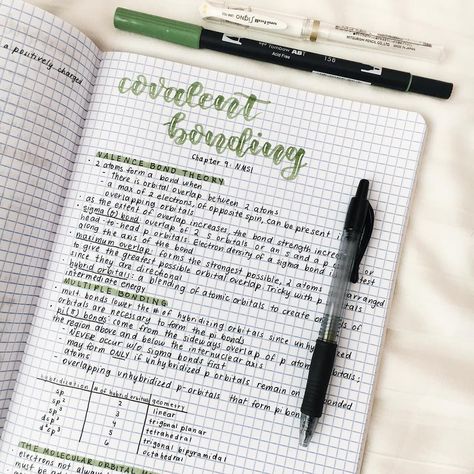 a positively charged
uni-ball Signo
MITSUBISHI PENCIL CO.
Tombow ABT
Acid Free
158
covalent
bonding
Chapter 9: NMSI
VALENCE BOND THEORY
· 2 atoms form a bond when
- There is orbital overlap between 2 atoms
- a max of 2 electrons, of opposite spin, can be present
overlapping orbitals
· as the extent of overlap increases, the bond strength increases
· sigma (σ) bond overlap of 2 s orbitals or an s and a p or
head-to-head p orbitals. Electron density of a sigma bond is greatest
along the axis of the bond
· maximum overlap: forms the strongest possible, 2 atoms are arranged
to give the greatest possible orbital overlap. Tricky with p orbitals
since they are directional
· hybrid orbitals: a blending of atomic orbitals to create orbitals of
intermediate energy
MULTIPLE BONDING
· mult bonds lower the # of hybridizing orbitals since unhybridized
orbitals are necessary to form the pi bonds
· pi (π) bonds: come from the sideways overlap of p atomic orbitals;
the region above and below the internuclear axis
- NEVER occur w/o sigma bonds first
- may form ONLY if unhybridized p orbitals remain on the bonded
atoms
- overlapping unhybridized p-orbitals that form pi bonds
hybridization # of hybrid orbitals geometry
sp 2 linear
sp² 3 trigonal planar
sp³ 4 tetrahedral
dsp³ 5 trigonal bipyramidal
d²sp³ 6 octahedral
THE MOLECULAR ORBITAL
· electrons not always
must be